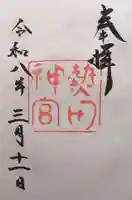 奉拝
熱田
神宮
令和八年三月十一日